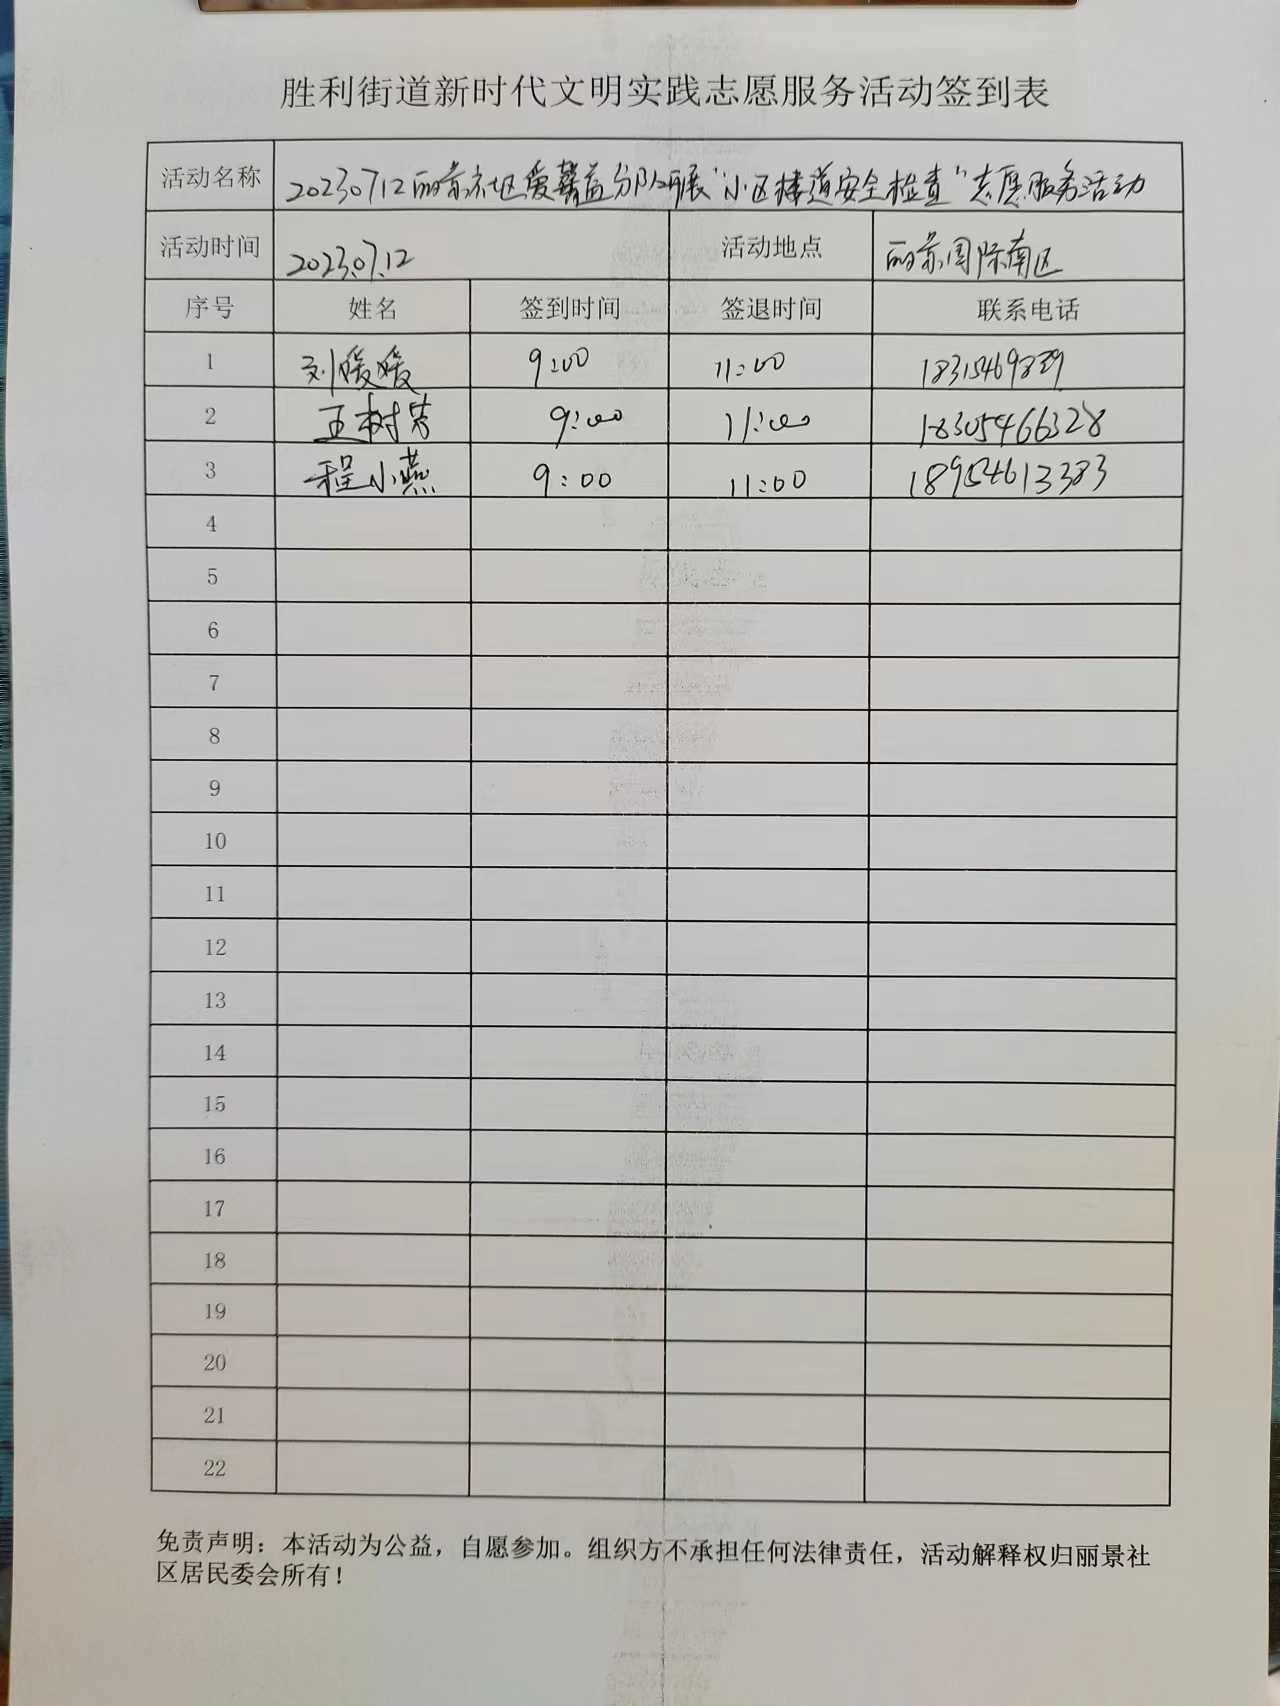 胜利街道新时代文明实践志愿服务活动签到表
活动名称 20230712丽景社区爱馨益分队开展“小区楼道安全检查”志愿服务活动
活动时间 2023.07.12 活动地点 丽景国际南区
序号 姓名 签到时间 签退时间 联系电话
1 刘媛媛 9:00 11:00
2 王树芳 9:00 11:00 18305466328
3 程小燕 9:00 11:00 18954613383
4
5
6
7
8
9
10
11
12
13
14
15
16
17
18
19
20
21
22
免责声明：本活动为公益，自愿参加。组织方不承担任何法律责任，活动解释权归丽景社
区居民委会所有！